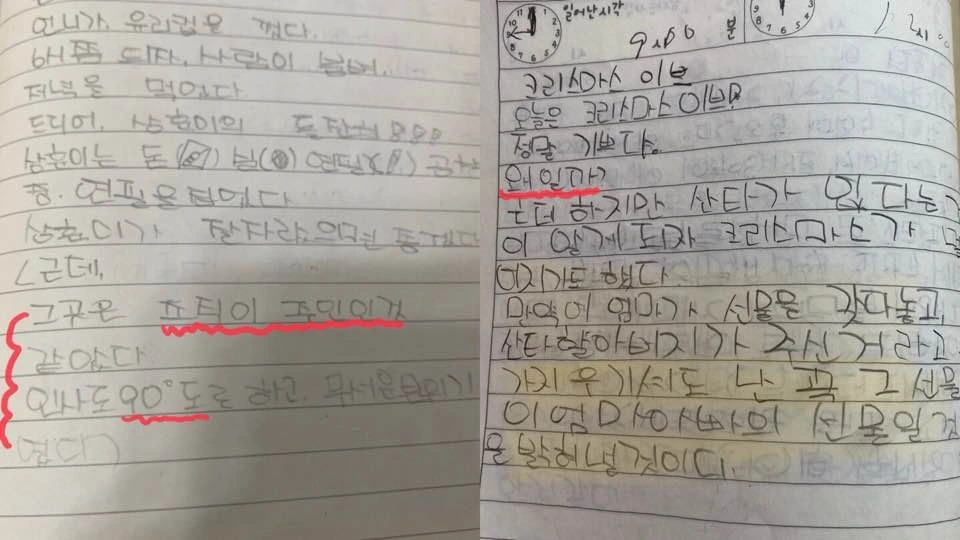 언니가 유리컵을 깼다.
6시쯤 되자, 사람이 붐벼.
저녁을 먹었다
드디어, 상현이의 돌잔치
상현이는 돈( ) 실( ) 연필( )
중. 연필을 잡았다
상현이가 잘 자랐으면 좋겠다
<근데,
그곳은 쓰틱이 주민인것
같았다
인사도 90°도로 하고. 무서운 분위기
였다>
일어난시각
분
크리스마스 이브
오늘은 크리스마스 이브다
정말 기쁘다.
왜일까?
하지만 산타가 없다는
이 알게 되자 크리스마스가
어지기도 했다
만약에 엄마가 선물을 갖다놓고,
산타할아버지가 주신 거라고
가지 우기셔도 난 꼭 그 선물
이 엄마아빠의 선물일 것
을 밝혀낼것이다.